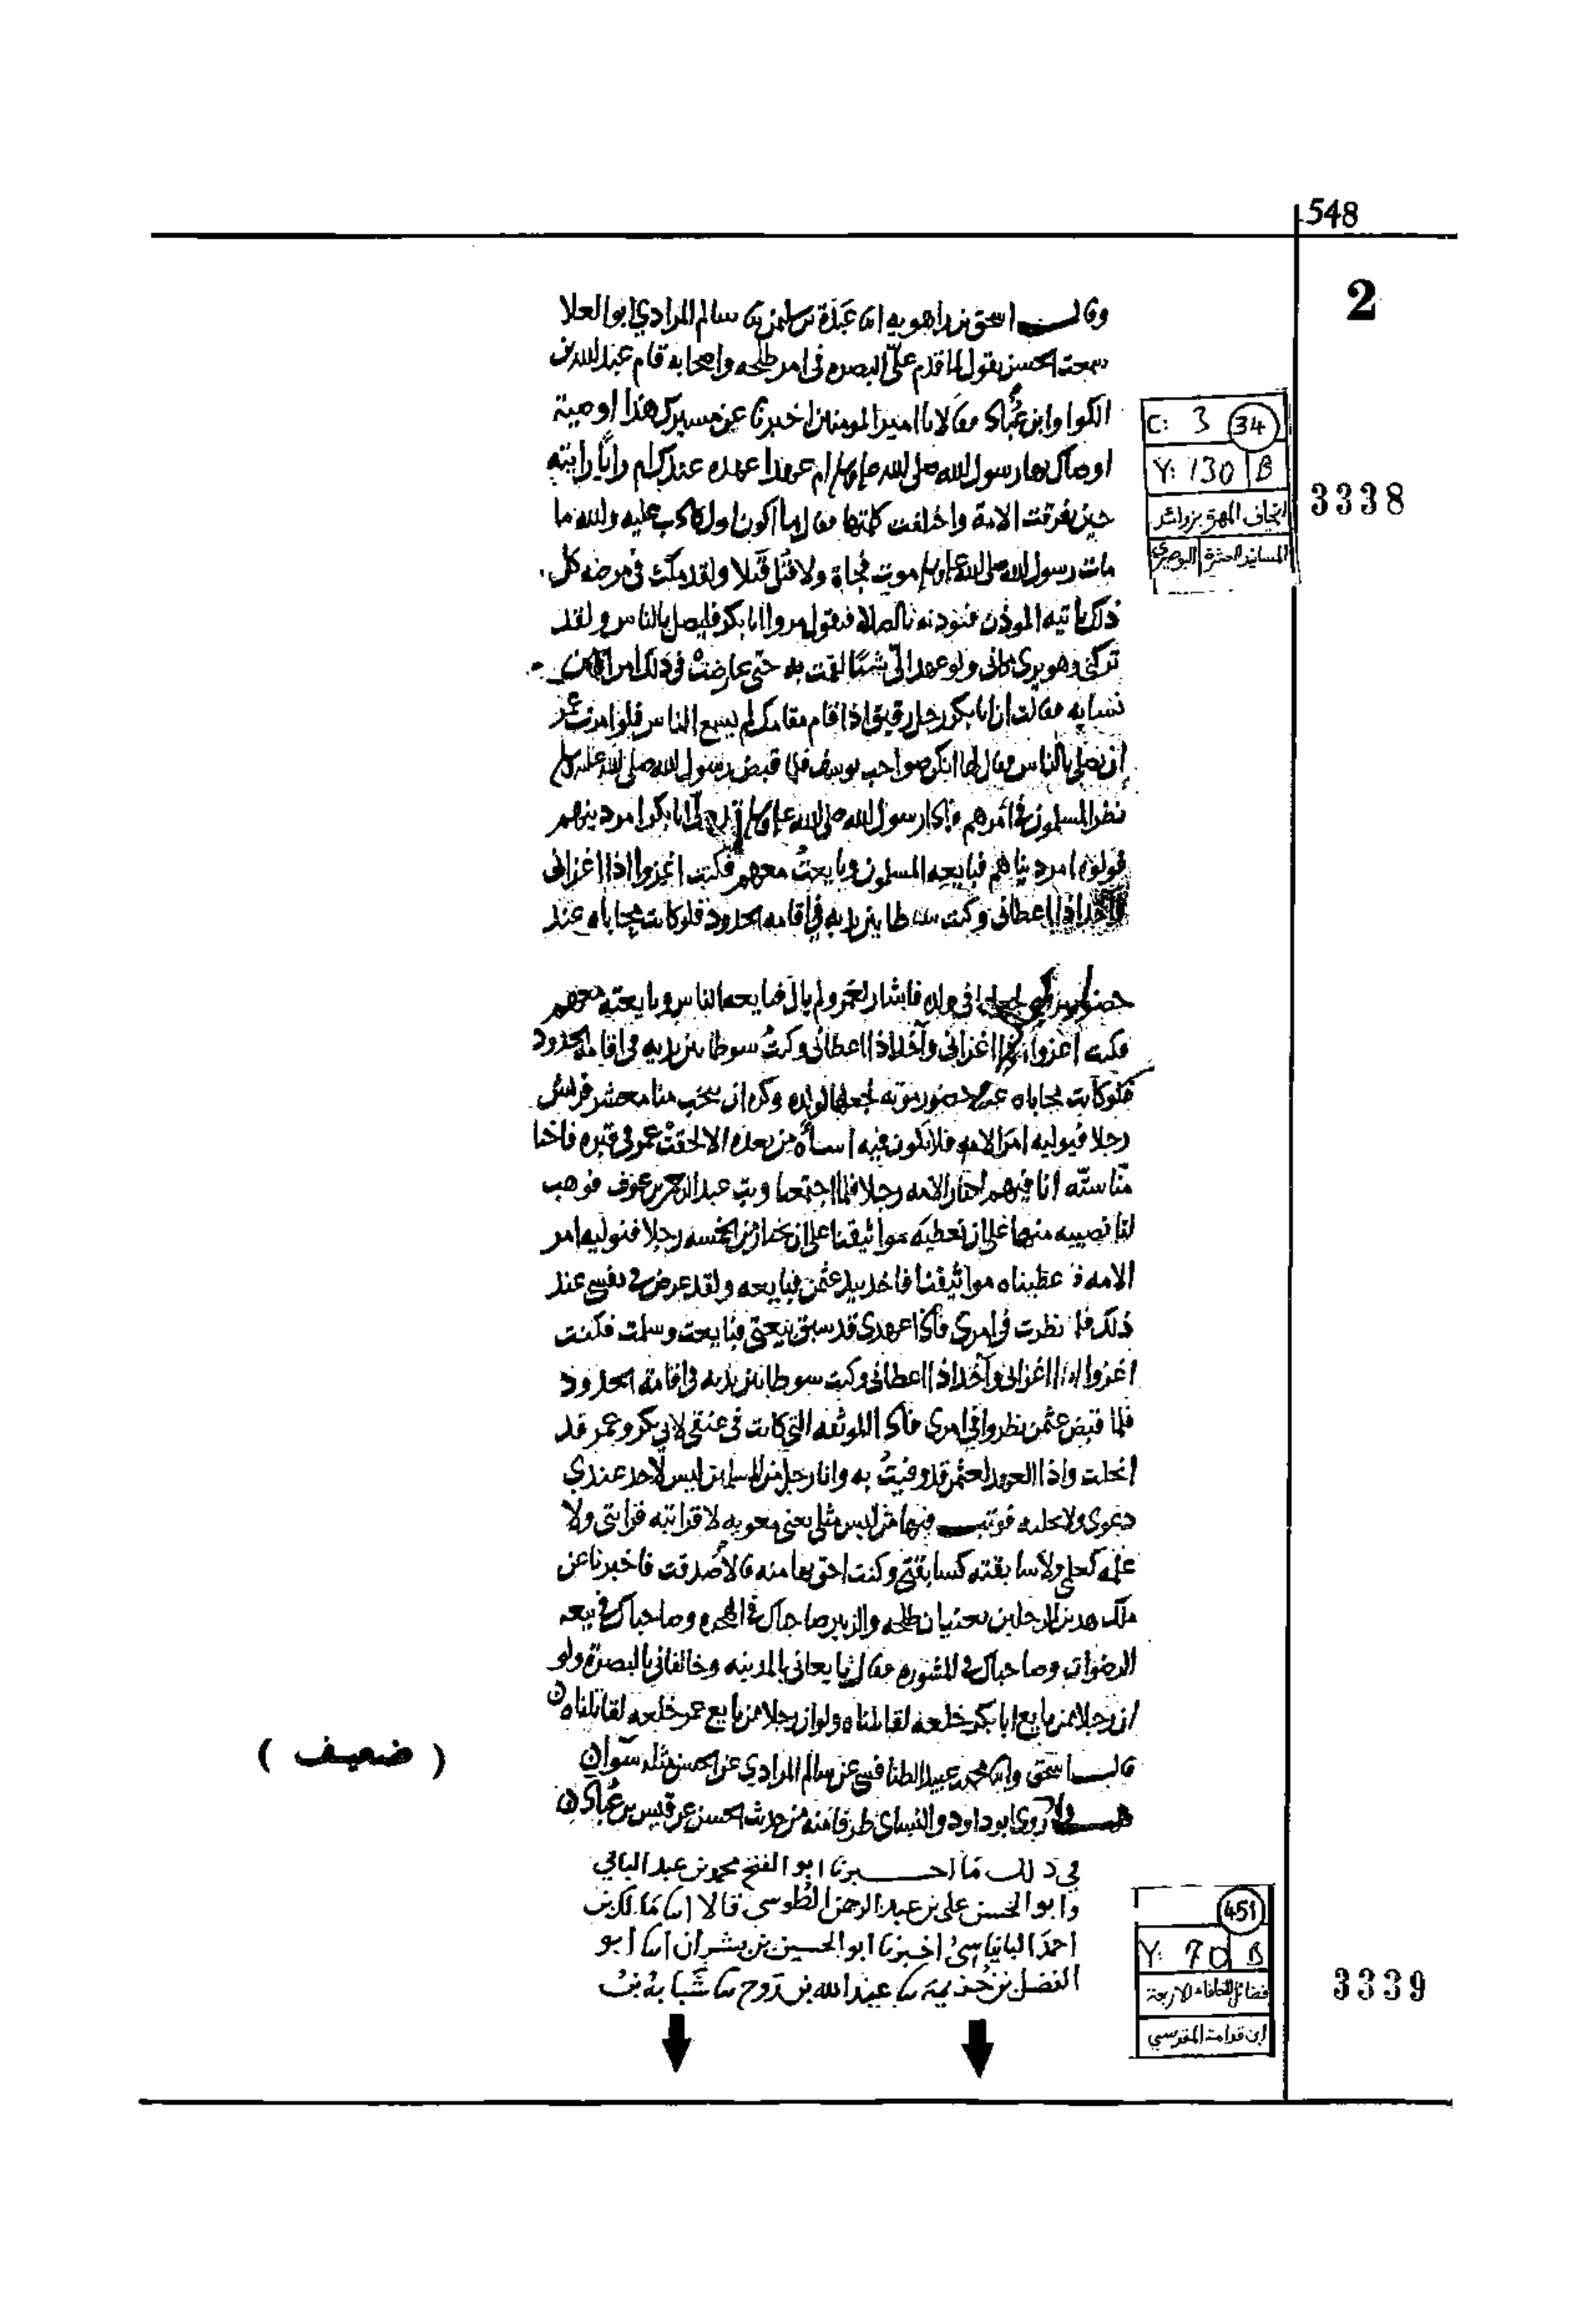 548
2
وقال اسحق بن راهويه انا عبدة بن سليمن سالم المرادي ابو العلا
سمعت الحسن يقول لما قدم علي البصره في امر طلحه واصحابه قام عبد الله بن
الكوا وابن عُبَاد فقالا يا امير المومنين اخبرنا عن مسيرك هذا اوصية
اوصاك بها رسول الله صلى الله عليه وسلم ام عهدا عهده عندك ام رايًا رايته
حين تفرقت الامة واختلفت كلمتها فقال ما اكون اول كاذب عليه والله ما
مات رسول الله صلى الله عليه وسلم موت فجاة ولا قُتل قتلا ولقد مكث في مرضه كل
ذلك ياتيه الموذن فيوذنه بالصلاة فيقول مروا ابا بكر فليصل بالناس ولقد
تركني وهو يرى مكاني ولو عهد اليّ شيئا لقمت به حتى عارضتْ في ذلك امراة من
نسايه فقالت ان ابا بكر رجل رقيق اذا قام مقامك لم يسمع الناس فلو امرت عُمر
ان يصلي بالناس فقال لها انكن صواحب يوسف فلما قبض رسول الله صلى الله عليه وسلم
نظر المسلمون في امرهم فاذا رسول الله صلى الله عليه وسلم قد ولّى ابا بكر امر دينهم
فولوه امر دنياهم فبايعه المسلمون وبايعتُ معهم فكنت اغزوا اذا اغزاني
وآخذ اذا اعطاني وكنت سوطا بين يديه في اقامه الحدود فلو كانت محاباه عند
حضور موته لجعلها في ولده فاشار لعمر ولم يال فبايعه الناس وبايعته معهم
فكنت اغزوا اذا اغزاني وآخذ اذا اعطاني وكنتُ سوطا بين يديه في اقامة الحدود
فلو كانت محاباه عند حضور موته لجعلها لولده وكره ان ينتخب منا معشر قريش
رجلا فيوليه امر الامه فلا تكون فيه اساءة من بعده الا لحقتْ عمر في قبره فاختار
منّا ستّه انا فيهم لنختار للامه رجلا فلما اجتمعنا وثب عبد الرحمن بن عوف فوهب
لنا نصيبه منها على ان نعطيه مواثيقنا على ان يختار من الخمسه رجلا فنوليه امر
الامه فاعطيناه مواثيقنا فاخذ بيد عثمن فبايعه ولقد عرض في نفسي عند
ذلك فلما نظرت في امري فاذا عهدي قد سبق بيعتي فبايعت وسلمت فكنت
اغزوا اذا اغزاني وآخذ اذا اعطاني وكنت سوطا بين يديه في اقامة الحدود
فلما قبض عثمن نظرت في امري فاذا الموثقه التي كانت في عنقي لابي بكر وعمر قد
انحلت واذا العهد لعثمن قد وفيتُ به وانا رجل من المسلمين ليس لاحد عندي
دعوى ولا طلبه فوثب فيها من ليس مثلي يعني معويه لا قرابته قرابتي ولا
علمه كعلمي ولا سابقته كسابقتي وكنت احق بها منه قالا صُدقت فاخبرنا عن
قتالك هذين الرجلين يعنيان طلحه والزبير صاحباك في الهجره وصاحباك في بيعه
الرضوان وصاحباك في المشوره فقال بايعاني بالمدينه وخالفاني بالبصره ولو
ان رجلا ممن بايع ابا بكر خلعه لقاتلناه ولو ان رجلا ممن بايع عمر خلعه لقاتلناه
قال اسحق وانا محمد بن عبيد الطنافسي عن سالم المرادي عن الحسن مثله سوا
قلت روى ابو داود والنساى طرفا منه من حديث الحسن عن قيس بن عُباد
في ذلك مَا اخبرنا ابو الفتح محمد بن عبد الباقي
وابو الحسن علي بن عبد الرحمن الطُوسي قالا انا مَالك بن
احمدَ البانياسيُ اخبرنا ابو الحسين بن بشران انا ابو
الفضل بن خُذيمة نا عبد الله بن رَوح نا شَبَابةُ بنُ
( ضعيف )
C: 3 34
Y: 130 B
اتحاف المهرة بزوائد
المسانيد العشرة البوصيري
3338
451
Y: 70 B
فضائل الخلفاء الاربعة
ابن قدامة المقدسي
3339